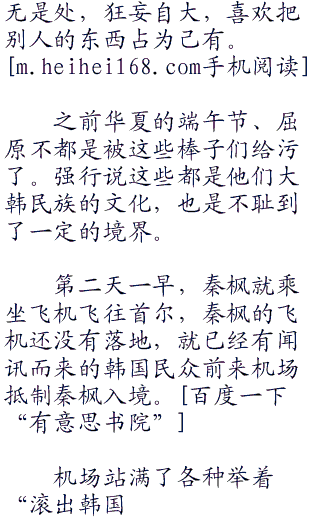 无是处，狂妄自大，喜欢把
别人的东西占为己有。
[m.heihei168.com手机阅读]
之前华夏的端午节、屈
原不都是被这些棒子们给污
了。强行说这些都是他们大
韩民族的文化，也是不耻到
了一定的境界。
第二天一早，秦枫就乘
坐飞机飞往首尔，秦枫的飞
机还没有落地，就已经有闻
讯而来的韩国民众前来机场
抵制秦枫入境。[百度一下
“有意思书院”]
机场站满了各种举着
“滚出韩国